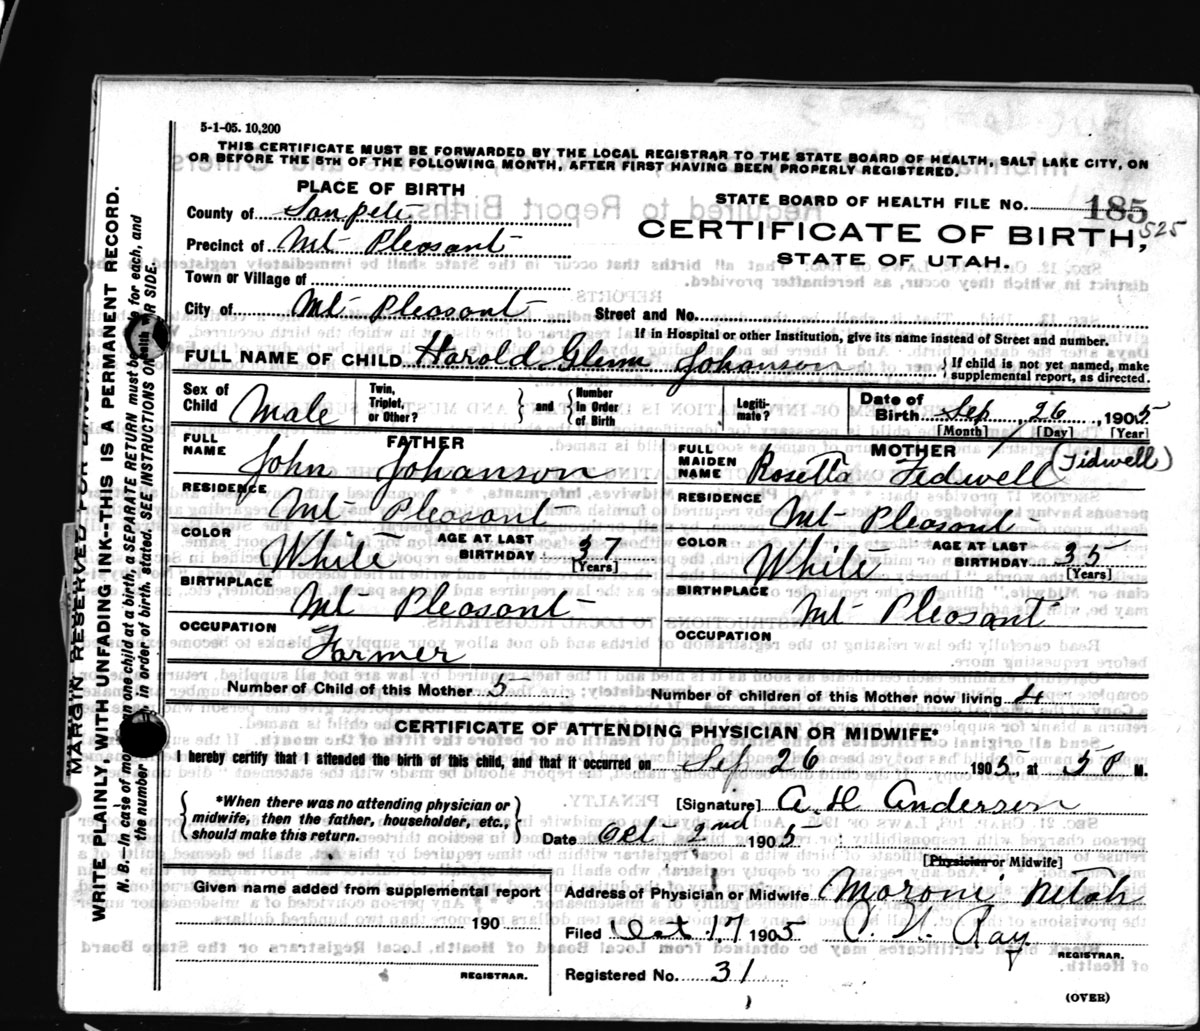 5-1-05. 10,200
THIS CERTIFICATE MUST BE FORWARDED BY THE LOCAL REGISTRAR TO THE STATE BOARD OF HEALTH, SALT LAKE CITY, ON
OR BEFORE THE 5TH OF THE FOLLOWING MONTH, AFTER FIRST HAVING BEEN PROPERLY REGISTERED.
PLACE OF BIRTH
STATE BOARD OF HEALTH FILE NO. 185
525
County of Sanpete
CERTIFICATE OF BIRTH,
Precinct of Mt Pleasant
STATE OF UTAH.
Town or Village of
City of Mt Pleasant Street and No.
If in Hospital or other Institution, give its name instead of Street and number.
FULL NAME OF CHILD Harold Glenn Johanson { If child is not yet named, make supplemental report, as directed.
Sex of Child Male Twin, Triplet, or Other? } and { Number in Order of Birth Legiti-mate? Date of Birth Sep, 26, 1905
[Month] [Day] [Year]
FATHER
MOTHER
FULL NAME John Johanson
FULL MAIDEN NAME Rosetta Tedwell (Tidwell)
RESIDENCE Mt Pleasant
RESIDENCE Mt Pleasant
COLOR White AGE AT LAST BIRTHDAY 37 [Years]
COLOR White AGE AT LAST BIRTHDAY 35 [Years]
BIRTHPLACE Mt Pleasant
BIRTHPLACE Mt Pleasant
OCCUPATION Farmer
OCCUPATION
Number of Child of this Mother 5 Number of children of this Mother now living 4
CERTIFICATE OF ATTENDING PHYSICIAN OR MIDWIFE*
I hereby certify that I attended the birth of this child, and that it occurred on Sep 26 1905, at 5 P M.
{ *When there was no attending physician or midwife, then the father, householder, etc., should make this return. }
[Signature] A H Andersen
Date Oct 2nd 1905
[Physician or Midwife]
Given name added from supplemental report
190
REGISTRAR.
Address of Physician or Midwife Moroni Utah
Filed Oct 17 1905 C. N. Ray
REGISTRAR.
Registered No. 31
(OVER)
MARGIN RESERVED FOR
WRITE PLAINLY, WITH UNFADING INK--THIS IS A PERMANENT RECORD.
N. B.—In case of mo one child at a birth, a SEPARATE RETURN must be for each, and
the number in order of birth, stated. SEE INSTRUCTIONS ON SIDE.